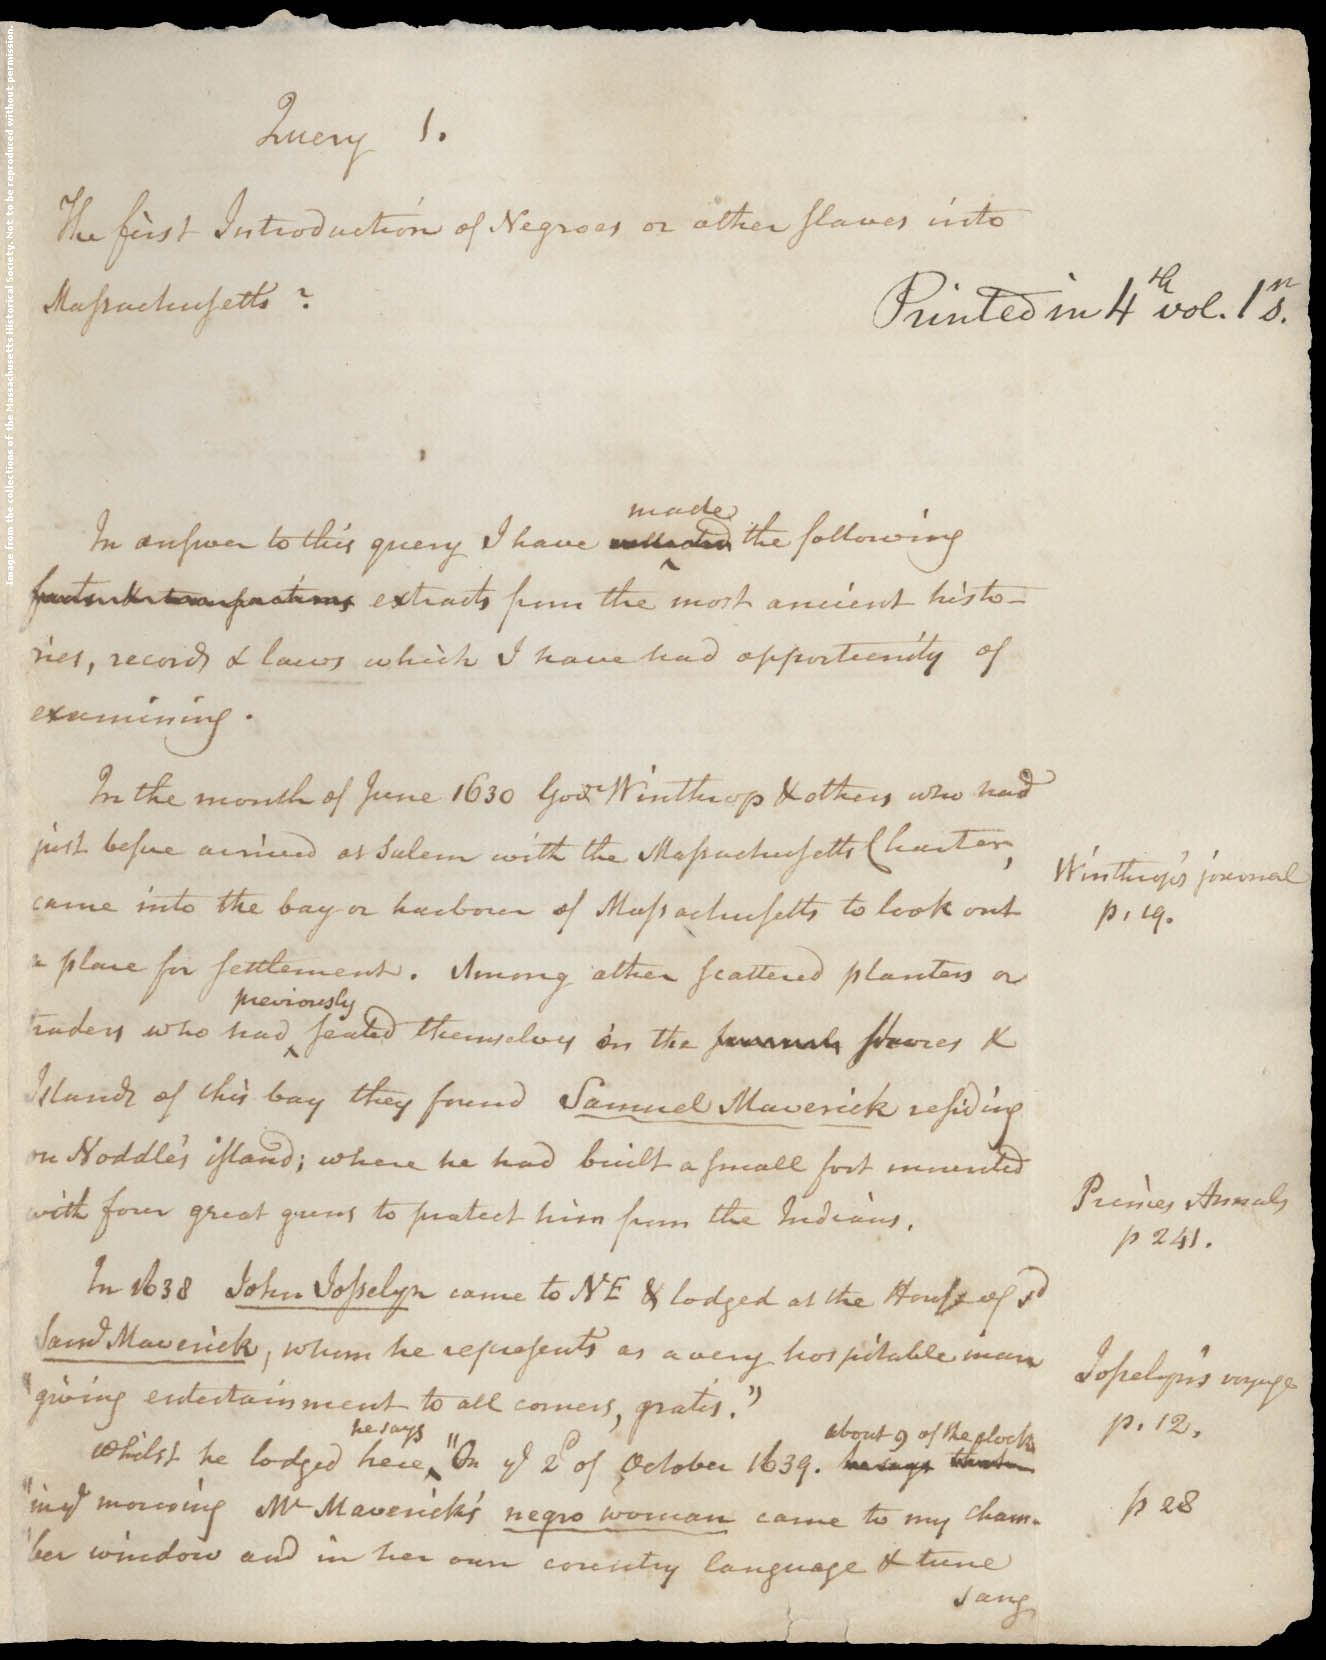 Image from the collections of the Massachusetts Historical Society. Not to be reproduced without permission.
Query 1.
The first Introduction of Negroes or other slaves into
Massachusetts?
Printed in 4th vol. 1st s.
made
In answer to this query I have collected the following
facts & transactions extracts from the most ancient histo-
ries, records & laws which I have had opportunity of
examining.
In the month of June 1630 Govr Winthrop & others who had
just before arrived at Salem with the Massachusetts Charter,
came into the bay or harbour of Massachusetts to look out
a place for settlement. Among other scattered planters or
previously
traders who had seated themselves on the shores &
Islands of this bay they found Samuel Maverick residing
on Noddle's island; where he had built a small fort mounted
with four great guns to protect him from the Indians.
In 1638 John Josselyn came to NE & lodged at the House of sd
Saml Maverick, whom he represents as a very hospitable man
"giving entertainment to all comers, gratis."
he says
about 9 of the clock
whilst he lodged here, "On ye 2d of October 1639. he says that
"in ye morning Mr Maverick's negro woman came to my cham-
"ber window and in her own country language & tune
sang
Winthrop's journal
p. 19.
Princes Annals
p 241.
Josselyn's voyage
p. 12.
p 28